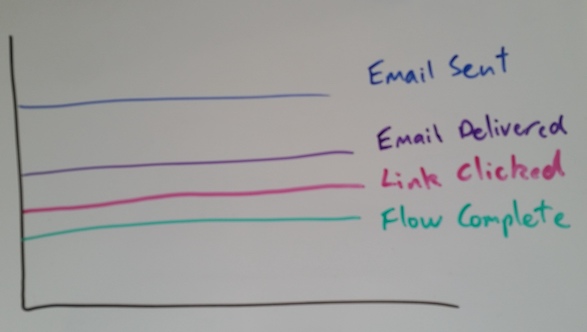 Email Sent
Email Delivered
Link Clicked
Flow Complete